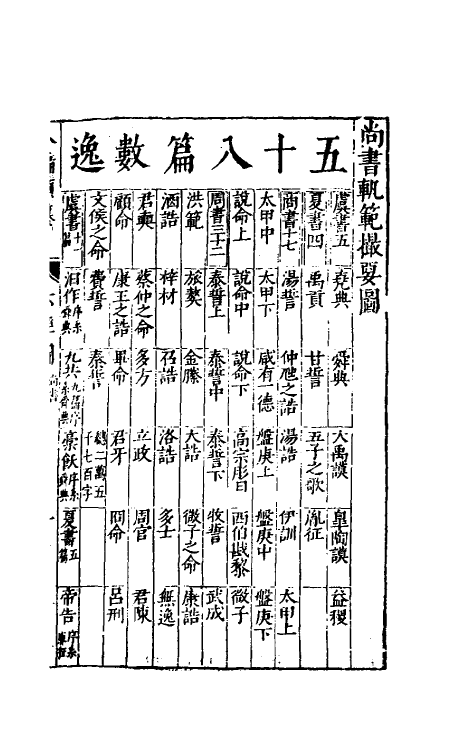 尚書軌範撮要圖
五十八篇數逸
虞書五 堯典 舜典 大禹謨 臯陶謨 益稷
夏書四 禹貢 甘誓 五子之歌 胤征
商書十七 湯誓 仲虺之誥 湯誥 伊訓 太甲上
太甲中 太甲下 咸有一德 盤庚上 盤庚中 盤庚下
說命上 說命中 說命下 高宗肜日 西伯戡黎 微子
周書三十二 泰誓上 泰誓中 泰誓下 牧誓 武成
洪範 旅獒 金縢 大誥 微子之命 康誥
酒誥 梓材 召誥 洛誥 多士 無逸
君奭 蔡仲之命 多方 立政 周官 君陳
顧命 康王之誥 畢命 君牙 冏命 呂刑
文侯之命 費誓 秦誓 總二萬五千七百字
虞書十一篇 汩作序系舜典 九共九篇序系舜典 槀飫序系舜典 夏書五篇 帝告序系